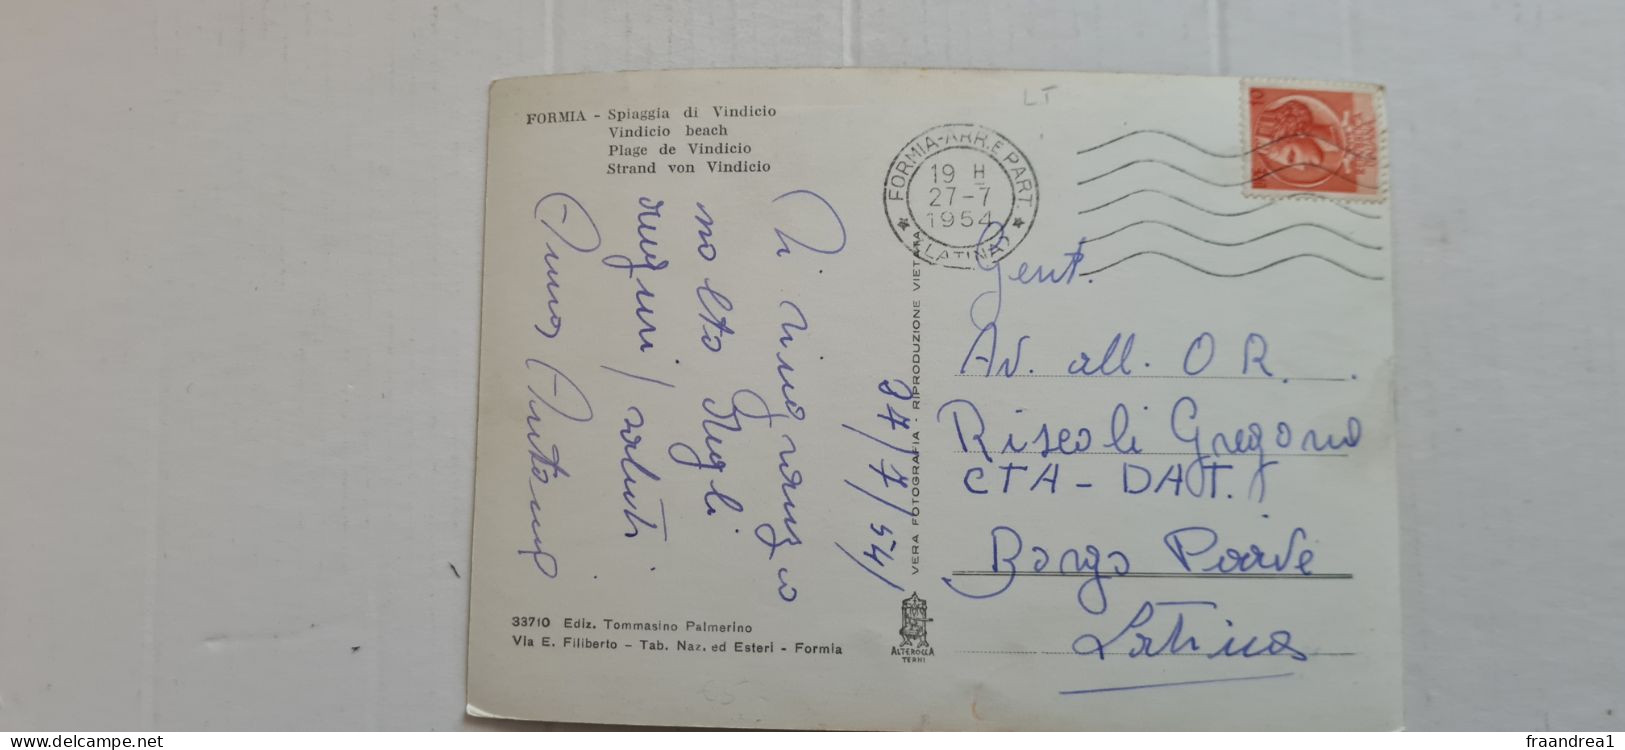 FORMIA - Spiaggia di Vindicio
Vindicio beach
Plage de Vindicio
Strand von Vindicio
LT
FORMIA-ARR.E PART.
19 H
27-7
1954
(LATINA)
Ti ringrazio
molto degli
auguri / saluti
24/7/54/
VERA FOTOGRAFIA - RIPRODUZIONE VIETATA
Gent.
Av. all. O R.
Riseoli Gregorio
CTA - DAT.
Borgo Piave
Latina
33710 Ediz. Tommasino Palmerino
Via E. Filiberto - Tab. Naz. ed Esteri - Formia
ALTEROCCA
TERNI
delcampe.net
fraandrea1